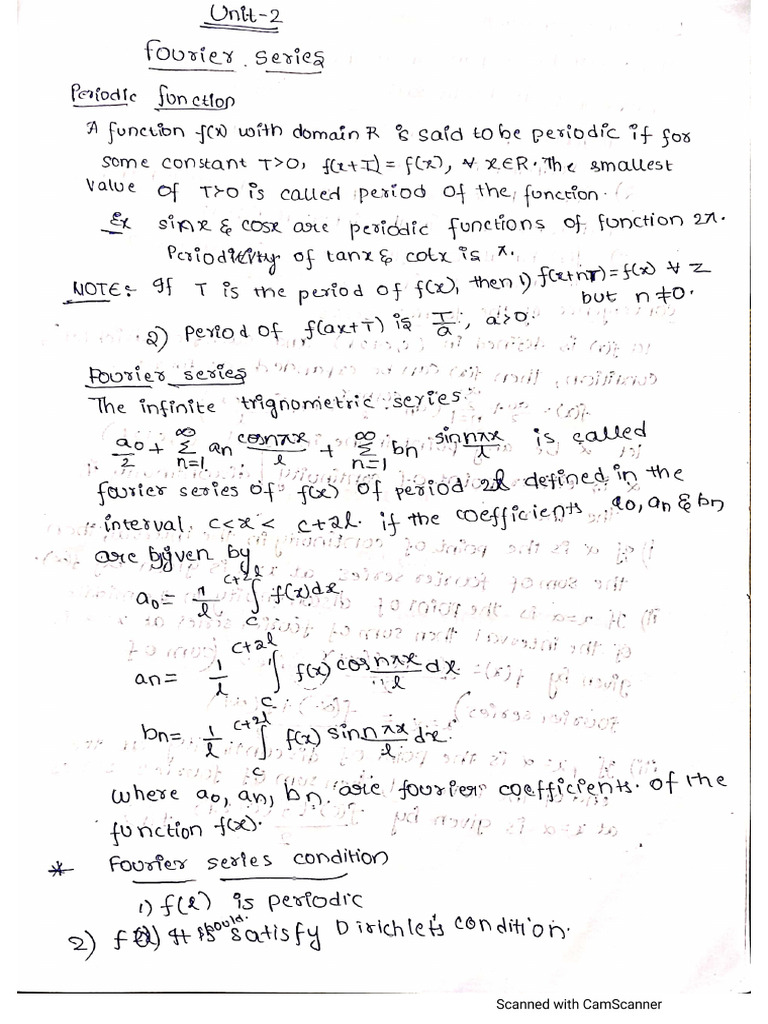 Unit-2
Fourier series
Periodic function
A function f(x) with domain R is said to be periodic if for
some constant T>0, f(x+T) = f(x), ∀ x∈R. The smallest
value of T>0 is called period of the function.
Ex sinx & cosx are periodic functions of function 2π.
Periodicity of tanx & cotx is π.
NOTE:- If T is the period of f(x), then 1) f(x+nT) = f(x) ∀ Z
but n ≠ 0.
2) Period of f(ax+T) is T/a, a>0.
Fourier series
The infinite trignometric series
a0/2 + ∞Σn=1 an cosnπx/l + ∞Σn=1 bn sinnπx/l is called
fourier series of f(x) of period 2l defined in the
interval c<x< c+2l. if the coefficients a0, an & bn
are given by
a0 = 1/l ∫c^c+2l f(x)dx
an = 1/l ∫c^c+2l f(x) cosnπx/l dx
bn = 1/l ∫c^c+2l f(x) sinnπx/l dx
where a0, an, bn are fourier coefficients of the
function f(x).
* Fourier series condition
1) f(x) is periodic
2) f(x) It should satisfy Dirichlet's condition.
Scanned with CamScanner